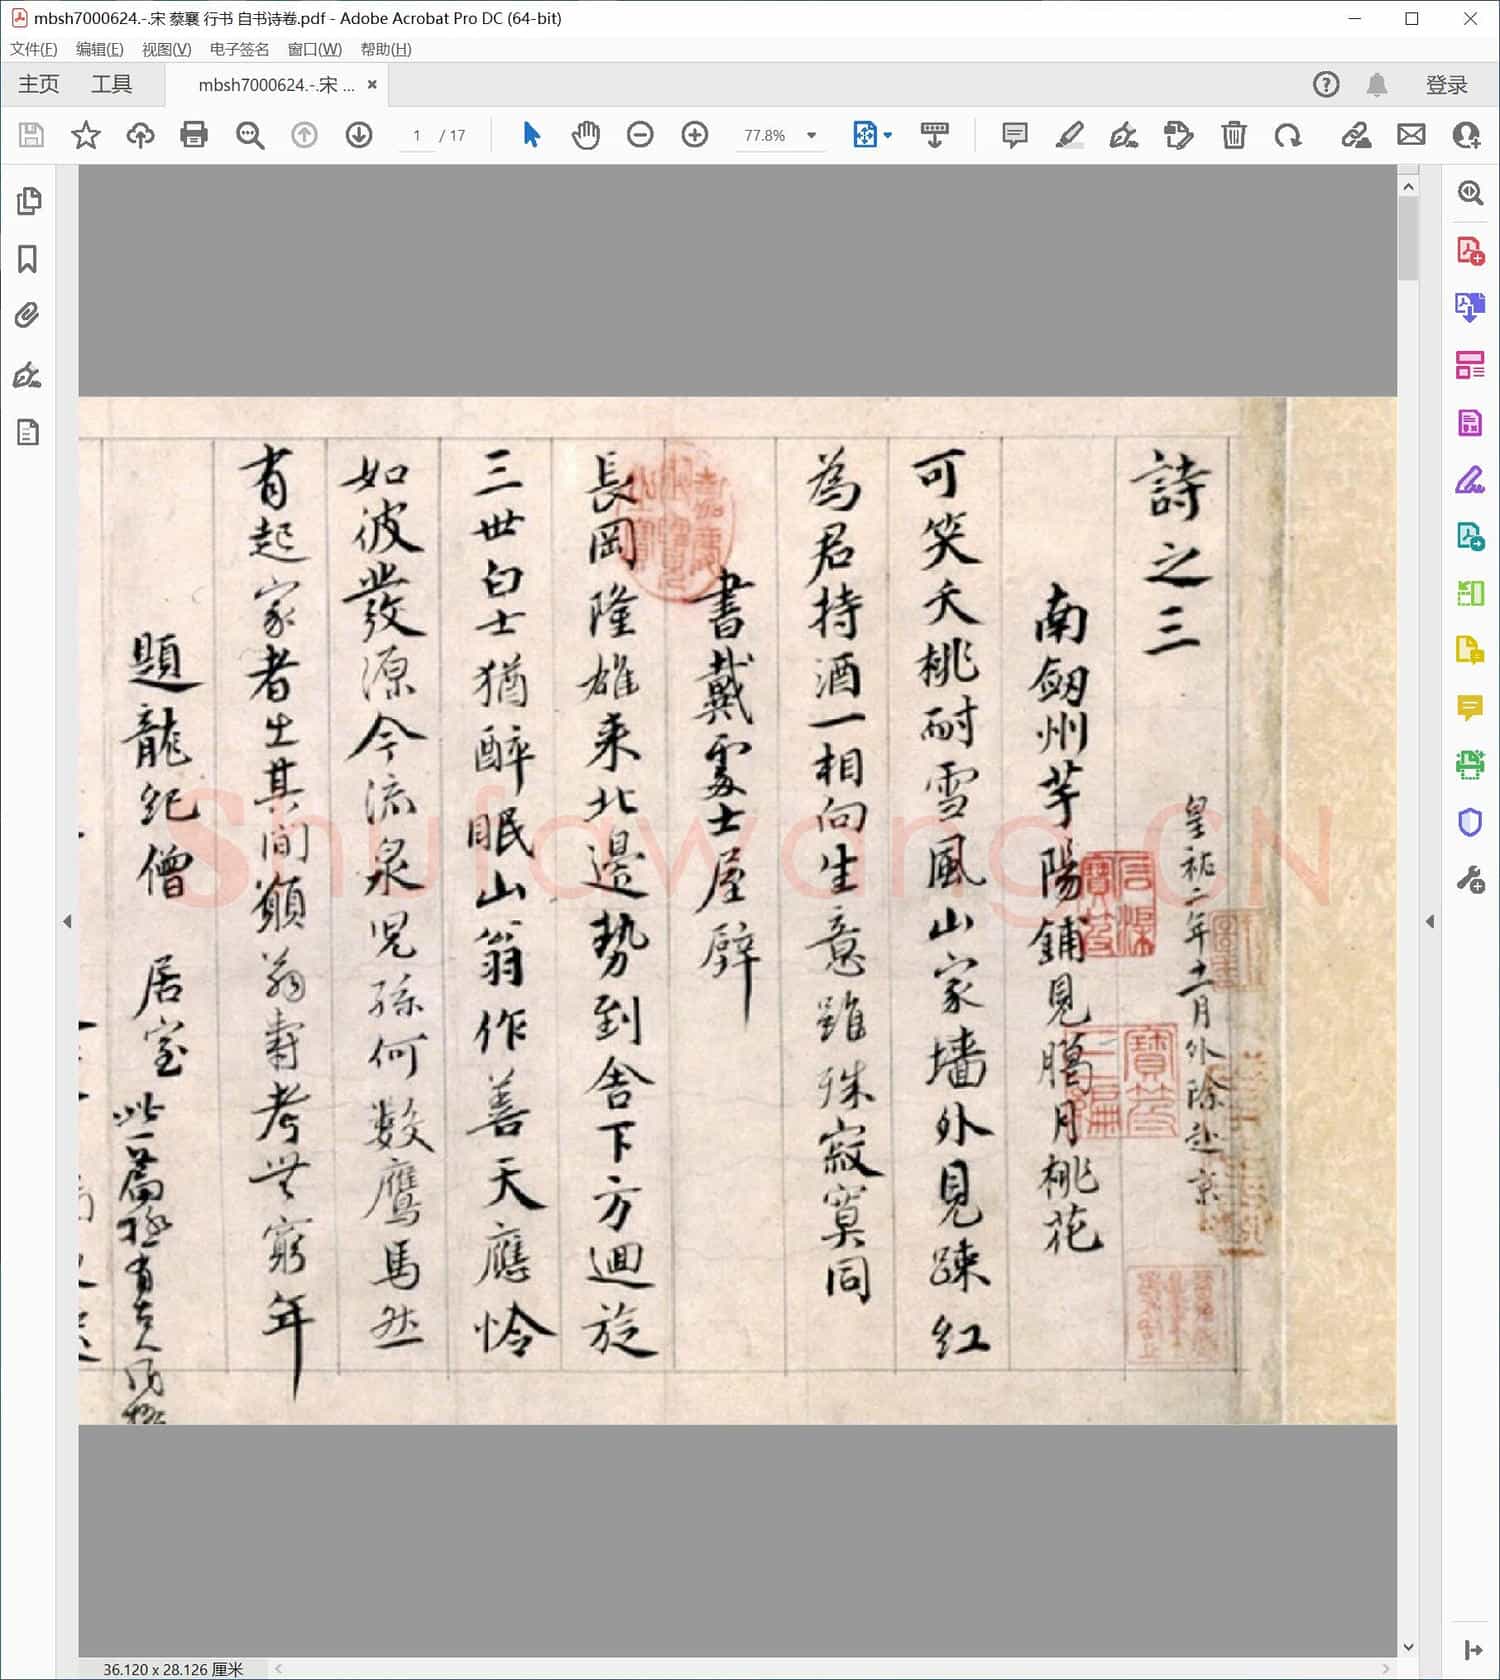 mbsh7000624.-.宋 蔡襄 行书 自书诗卷.pdf - Adobe Acrobat Pro DC (64-bit)
文件(F) 编辑(E) 视图(V) 电子签名 窗口(W) 帮助(H)
主页 工具 mbsh7000624.-.宋 ... × 登录
1 / 17 77.8%
詩之三
皇祐二年十一月外除赴京
南劒州芋陽鋪見臈月桃花
可笑夭桃耐雪風山家墻外見踈紅
為君持酒一相向生意雖殊寂寞同
書戴處士屋壁
長岡隆雄來北邊勢到舍下方迴旋
三世白士猶醉眠山翁作善天應怜
如彼發源今流泉児孫何數鷹馬然
有起家者出其間願翁壽考無窮年
題龍紀僧居室
此一篇極有古人風格
Shufawang.CN
36.120 x 28.126 厘米